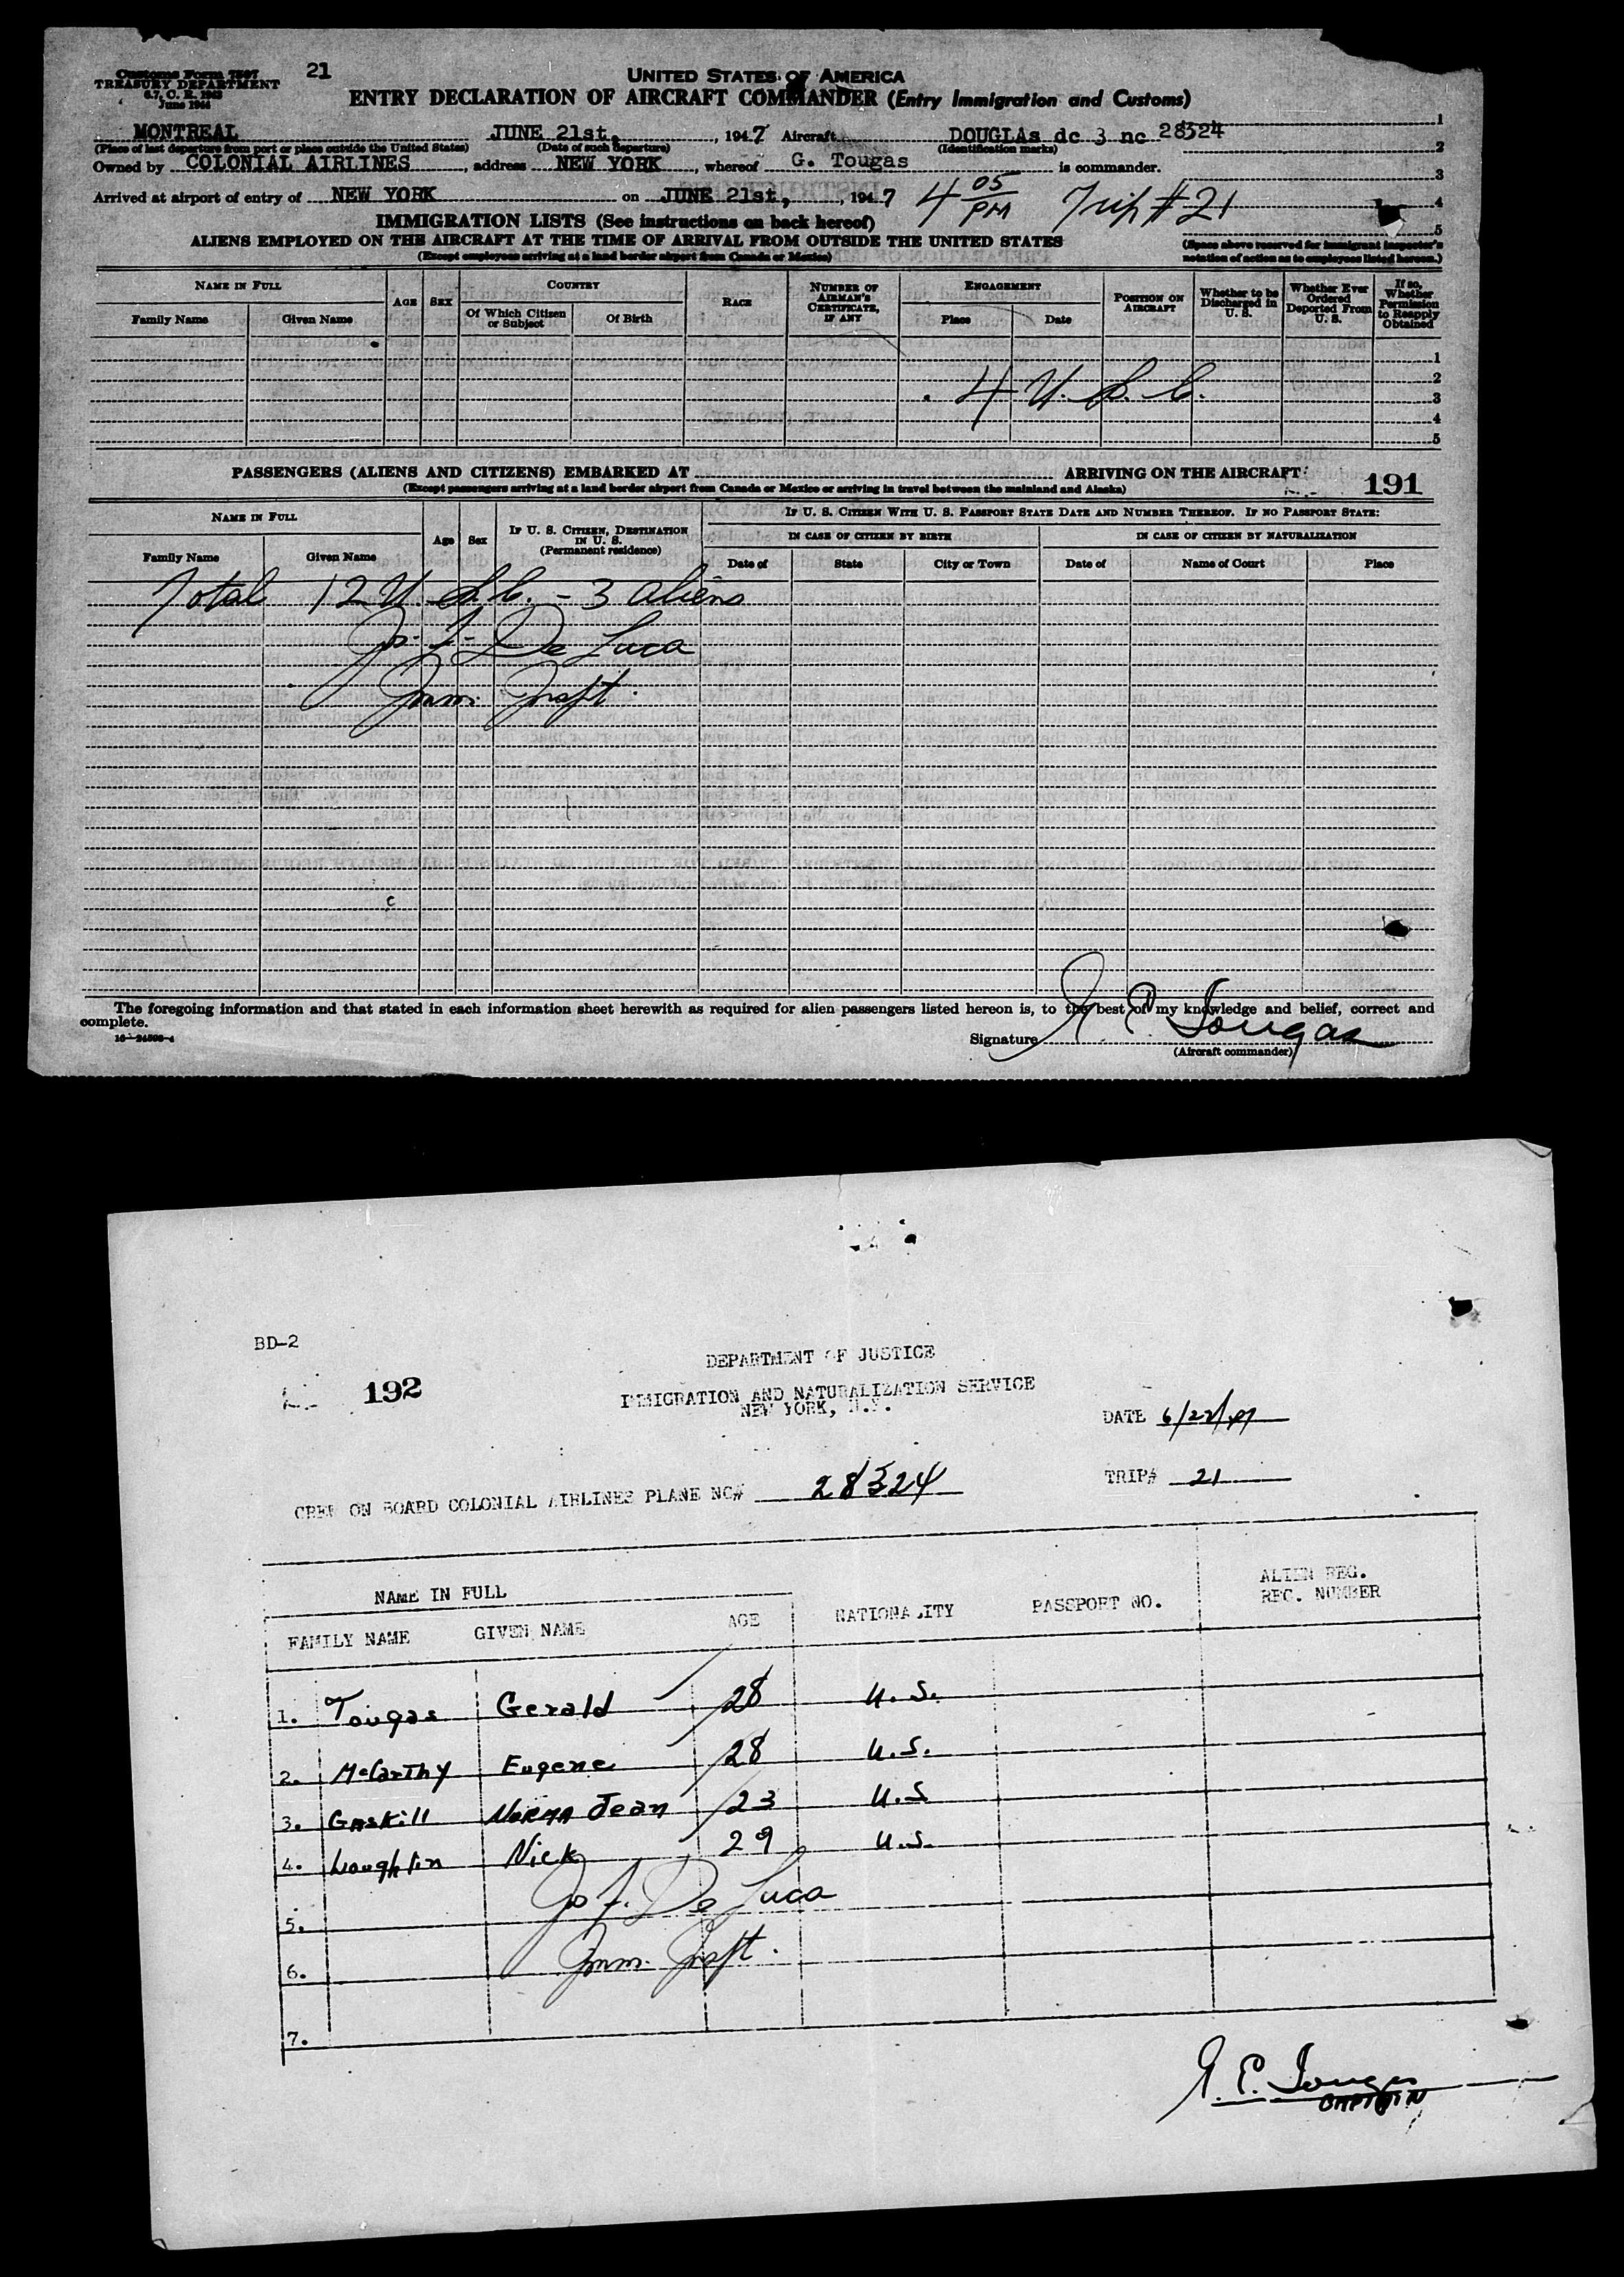 Customs Form 7507
TREASURY DEPARTMENT
June 1944
21
UNITED STATES OF AMERICA
ENTRY DECLARATION OF AIRCRAFT COMMANDER (Entry Immigration and Customs)
MONTREAL JUNE 21st, , 1947 Aircraft DOUGLAs dc 3 nc 28324 1
(Place of last departure from port or place outside the United States) (Date of such departure) (Identification marks) 2
Owned by COLONIAL AIRLINES , address NEW YORK , whereof G. Tougas is commander. 3
Arrived at airport of entry of NEW YORK on JUNE 21st, , 1947 4 05 PM Trip # 21 4
5
IMMIGRATION LISTS (See instructions on back hereof)
ALIENS EMPLOYED ON THE AIRCRAFT AT THE TIME OF ARRIVAL FROM OUTSIDE THE UNITED STATES
(Except employees arriving at a land border airport from Canada or Mexico)
(Space above reserved for immigrant inspector's notation of action as to employees listed hereon.)
NAME IN FULL
Family Name Given Name
AGE SEX
COUNTRY
Of Which Citizen or Subject Of Birth
RACE
NUMBER OF AIRMAN'S CERTIFICATE, IF ANY
ENGAGEMENT
Place Date
POSITION ON AIRCRAFT
Whether to be Discharged in U. S.
Whether Ever Ordered Deported From U. S.
If so, Whether Permission to Reapply Obtained
1
2
4 U. S. C. 3
4
5
PASSENGERS (ALIENS AND CITIZENS) EMBARKED AT ARRIVING ON THE AIRCRAFT:
(Except passengers arriving at a land border airport from Canada or Mexico or arriving in travel between the mainland and Alaska)
191
NAME IN FULL
Family Name Given Name
Age Sex
IF U. S. CITIZEN, DESTINATION IN U. S.
(Permanent residence)
IF U. S. CITIZEN WITH U. S. PASSPORT STATE DATE AND NUMBER THEREOF. IF NO PASSPORT STATE:
IN CASE OF CITIZEN BY BIRTH IN CASE OF CITIZEN BY NATURALIZATION
Date of State City or Town Date of Name of Court Place
Total 12 U. S. C. - 3 Aliens
Jos. F. De Luca
Imm. Inspt.
c
The foregoing information and that stated in each information sheet herewith as required for alien passengers listed hereon is, to the best of my knowledge and belief, correct and
complete.
Signature G. E. Tougas
(Aircraft commander)
BD-2
192
DEPARTMENT OF JUSTICE
IMMIGRATION AND NATURALIZATION SERVICE
NEW YORK, N.Y.
DATE 6/22/47
TRIP# 21
CREW ON BOARD COLONIAL AIRLINES PLANE NC# 28324
NAME IN FULL
FAMILY NAME GIVEN NAME AGE NATIONALITY PASSPORT NO. ALIEN REG. REC. NUMBER
1. Tougas Gerald 28 U. S.
2. McCarthy Eugene 28 U. S.
3. Gaskill Norma Jean 23 U. S
4. Loughlin Nick 29 U. S.
Jos F. De Luca
5.
Imm. Inspt.
6.
7.
G. E. Tougas
CAPTAIN